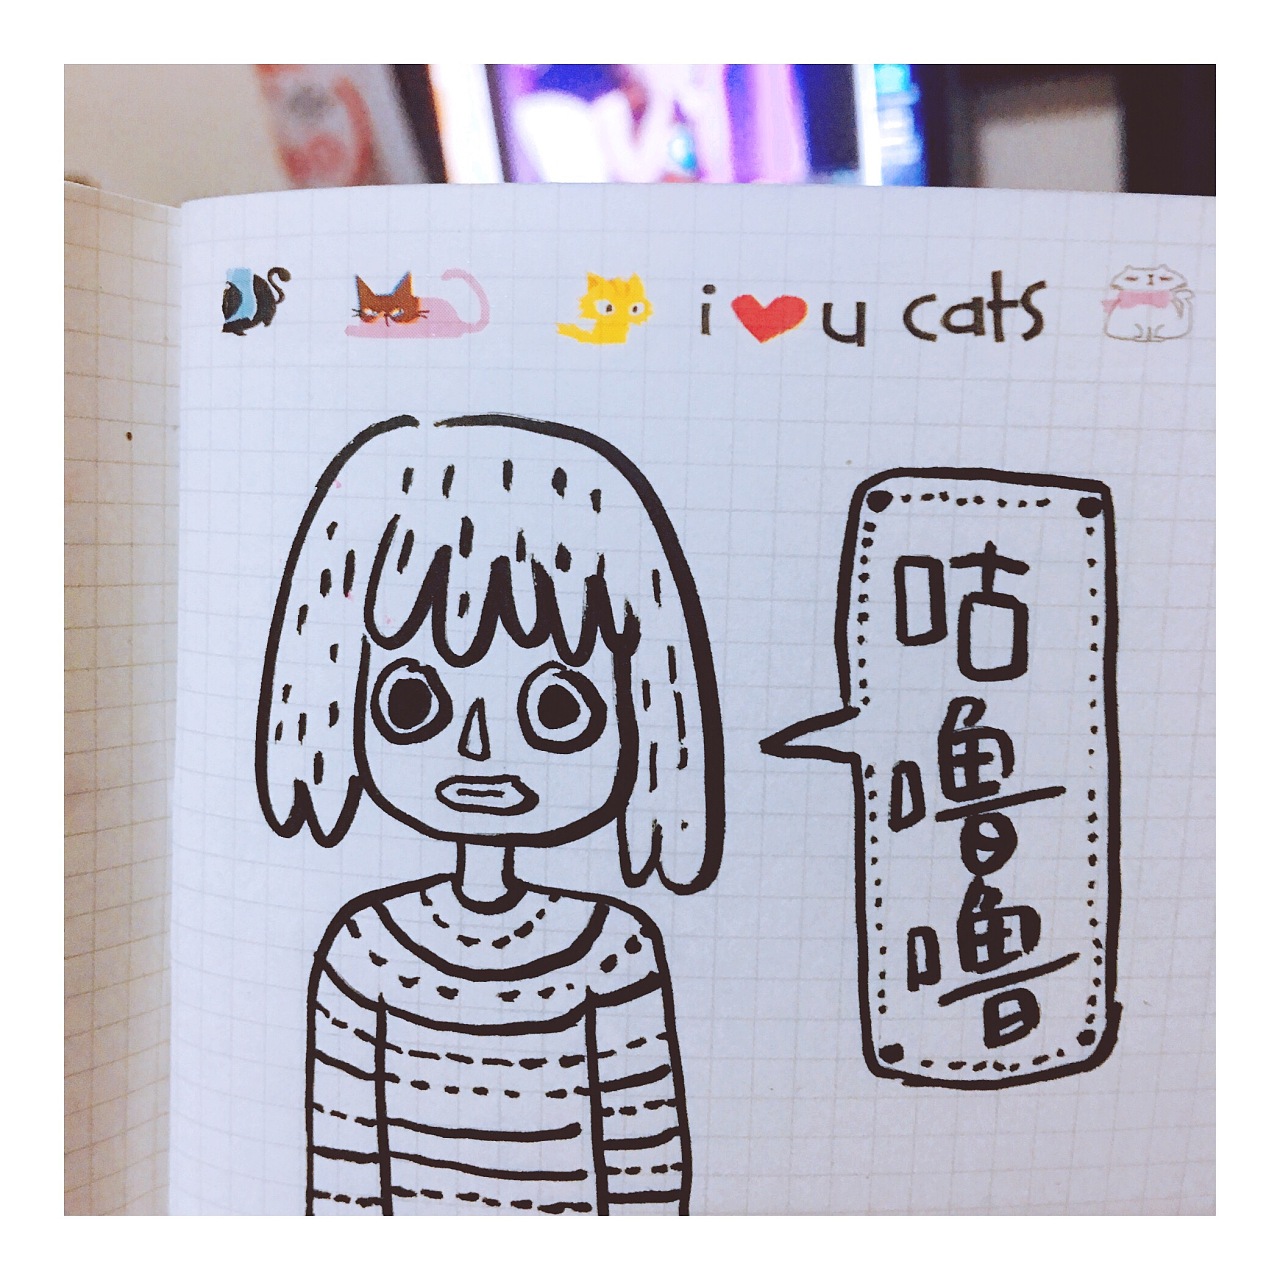 i ❤ u cats
咕
噜
噜